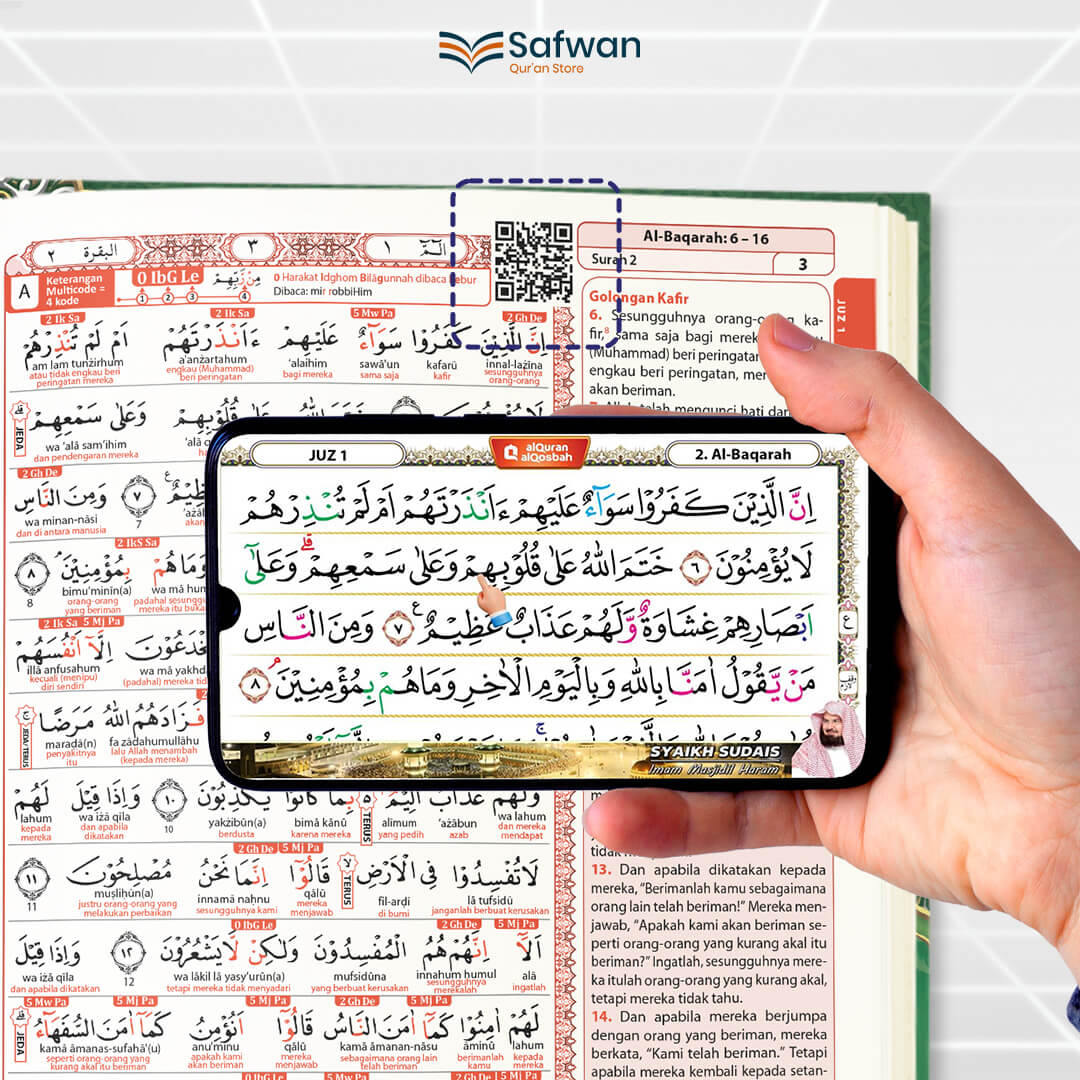 Safwan
Qur'an Store
البقرة ٢
٣
الۤمّۤ ١
Al-Baqarah: 6 – 16
Surah 2
3
JUZ 1
A
Keterangan
Multicode =
4 kode
0 IbG Le
1 2 3 4
مِنْ رَّبِّهِمْ
0 Harakat Idghom Bilãgunnah dibaca
Dibaca: mir robbiHim
2 Ik Sa
2 Ik Sa
5 Mw Pa
2 Gh De
اِنَّ الَّذِيْنَ كَفَرُوْا سَوَاۤءٌ عَلَيْهِمْ ءَاَنْذَرْتَهُمْ اَمْ لَمْ تُنْذِرْهُمْ
innal-lażīna kafarū sawā'un 'alaihim a'anżartahum am lam tunżirhum
sesungguhnya orang-orang kafir sama saja bagi mereka engkau (Muhammad) beri peringatan atau tidak engkau beri peringatan mereka
Golongan Kafir
6. Sesungguhnya orang-orang ka-
fir⁸ sama saja bagi
(Muhammad) beri peringatan
engkau beri peringatan,
akan beriman.
JEDA
وَعَلٰى سَمْعِهِمْ
wa 'alā sam'ihim
dan pendengaran mereka
2 Gh De
وَمِنَ النَّاسِ
٧
wa minan-nāsi
7
dan di antara manusia
2 IkS Sa
بِمُؤْمِنِيْنَ ٨
bimu'minīn(a)
8
orang-orang yang beriman
2 Ik Sa 5 Mj Pa
اِلَّآ اَنْفُسَهُمْ
illā anfusahum
kecuali (menipu) diri sendiri
فَزَادَهُمُ اللّٰهُ مَرَضًا
fa zādahumullāhu maraḍā(n)
lalu Allah menambah (kepada mereka) penyakitnya itu
JUZ 1
alQuran
alQosbah
2. Al-Baqarah
اِنَّ الَّذِيْنَ كَفَرُوْا سَوَاۤءٌ عَلَيْهِمْ ءَاَنْذَرْتَهُمْ اَمْ لَمْ تُنْذِرْهُمْ
لَا يُؤْمِنُوْنَ ٦ خَتَمَ اللّٰهُ عَلٰى قُلُوْبِهِمْ وَعَلٰى سَمْعِهِمْ ۗ وَعَلٰٓى
اَبْصَارِهِمْ غِشَاوَةٌ وَّلَهُمْ عَذَابٌ عَظِيْمٌ ࣖ ٧ وَمِنَ النَّاسِ
مَنْ يَّقُوْلُ اٰمَنَّا بِاللّٰهِ وَبِالْيَوْمِ الْاٰخِرِ وَمَا هُمْ بِمُؤْمِنِيْنَ ۘ ٨
ع
SYAIKH SUDAIS
Imam Masjidil Haram
وَلَهُمْ عَذَابٌ اَلِيْمٌ ۢ بِمَا كَانُوْا يَكْذِبُوْنَ ١٠ وَاِذَا قِيْلَ لَهُمْ
wa lahum 'ażābun alīmum bimā kānū yakżibūn(a) 10 wa iżā qīla lahum
dan mereka mendapat azab yang pedih karena mereka berdusta dan apabila dikatakan kepada mereka
TERUS
2 Gh De 5 Mj Pa
لَا تُفْسِدُوْا فِى الْاَرْضِ ۙ قَالُوْٓا اِنَّمَا نَحْنُ مُصْلِحُوْنَ ١١
lā tufsidū fil-arḍi qālū innamā naḥnu muṣliḥūn(a) 11
janganlah berbuat kerusakan di bumi mereka menjawab sesungguhnya kami justru orang-orang yang melakukan perbaikan
TERUS
0 IbG Le
2 Gh De 5 Mj Pa
اَلَآ اِنَّهُمْ هُمُ الْمُفْسِدُوْنَ وَلٰكِنْ لَّا يَشْعُرُوْنَ ١٢ وَاِذَا قِيْلَ
alā innahum humul mufsidūna wa lākil lā yasy'urūn(a) 12 wa iżā qīla
ingatlah sesungguhnya merekalah yang berbuat kerusakan tetapi mereka tidak menyadari dan apabila dikatakan
5 Mw Pa 5 Mj Pa 5 Mj Pa 2 Gh De 5 Mj Pa
لَهُمْ اٰمِنُوْا كَمَآ اٰمَنَ النَّاسُ قَالُوْٓا اَنُؤْمِنُ كَمَآ اٰمَنَ السُّفَهَاۤءُ
lahum āminū kamā āmanan-nāsu qālū anu'minu kamā āmanas-sufahā'(u)
kepada mereka berimanlah sebagaimana orang lain telah beriman mereka menjawab apakah kami beriman seperti orang-orang yang kurang akal itu beriman
JEDA
0 IbG Le 5 Mj Pa 2 Gh De 5 Mj Pa
13. Dan apabila dikatakan kepada
mereka, "Berimanlah kamu sebagaimana
orang lain telah beriman!" Mereka men-
jawab, "Apakah kami akan beriman se-
perti orang-orang yang kurang akal itu
beriman?" Ingatlah, sesungguhnya mere-
ka itulah orang-orang yang kurang akal,
tetapi mereka tidak tahu.
14. Dan apabila mereka berjumpa
dengan orang yang beriman, mereka
berkata, "Kami telah beriman." Tetapi
apabila mereka kembali kepada setan-